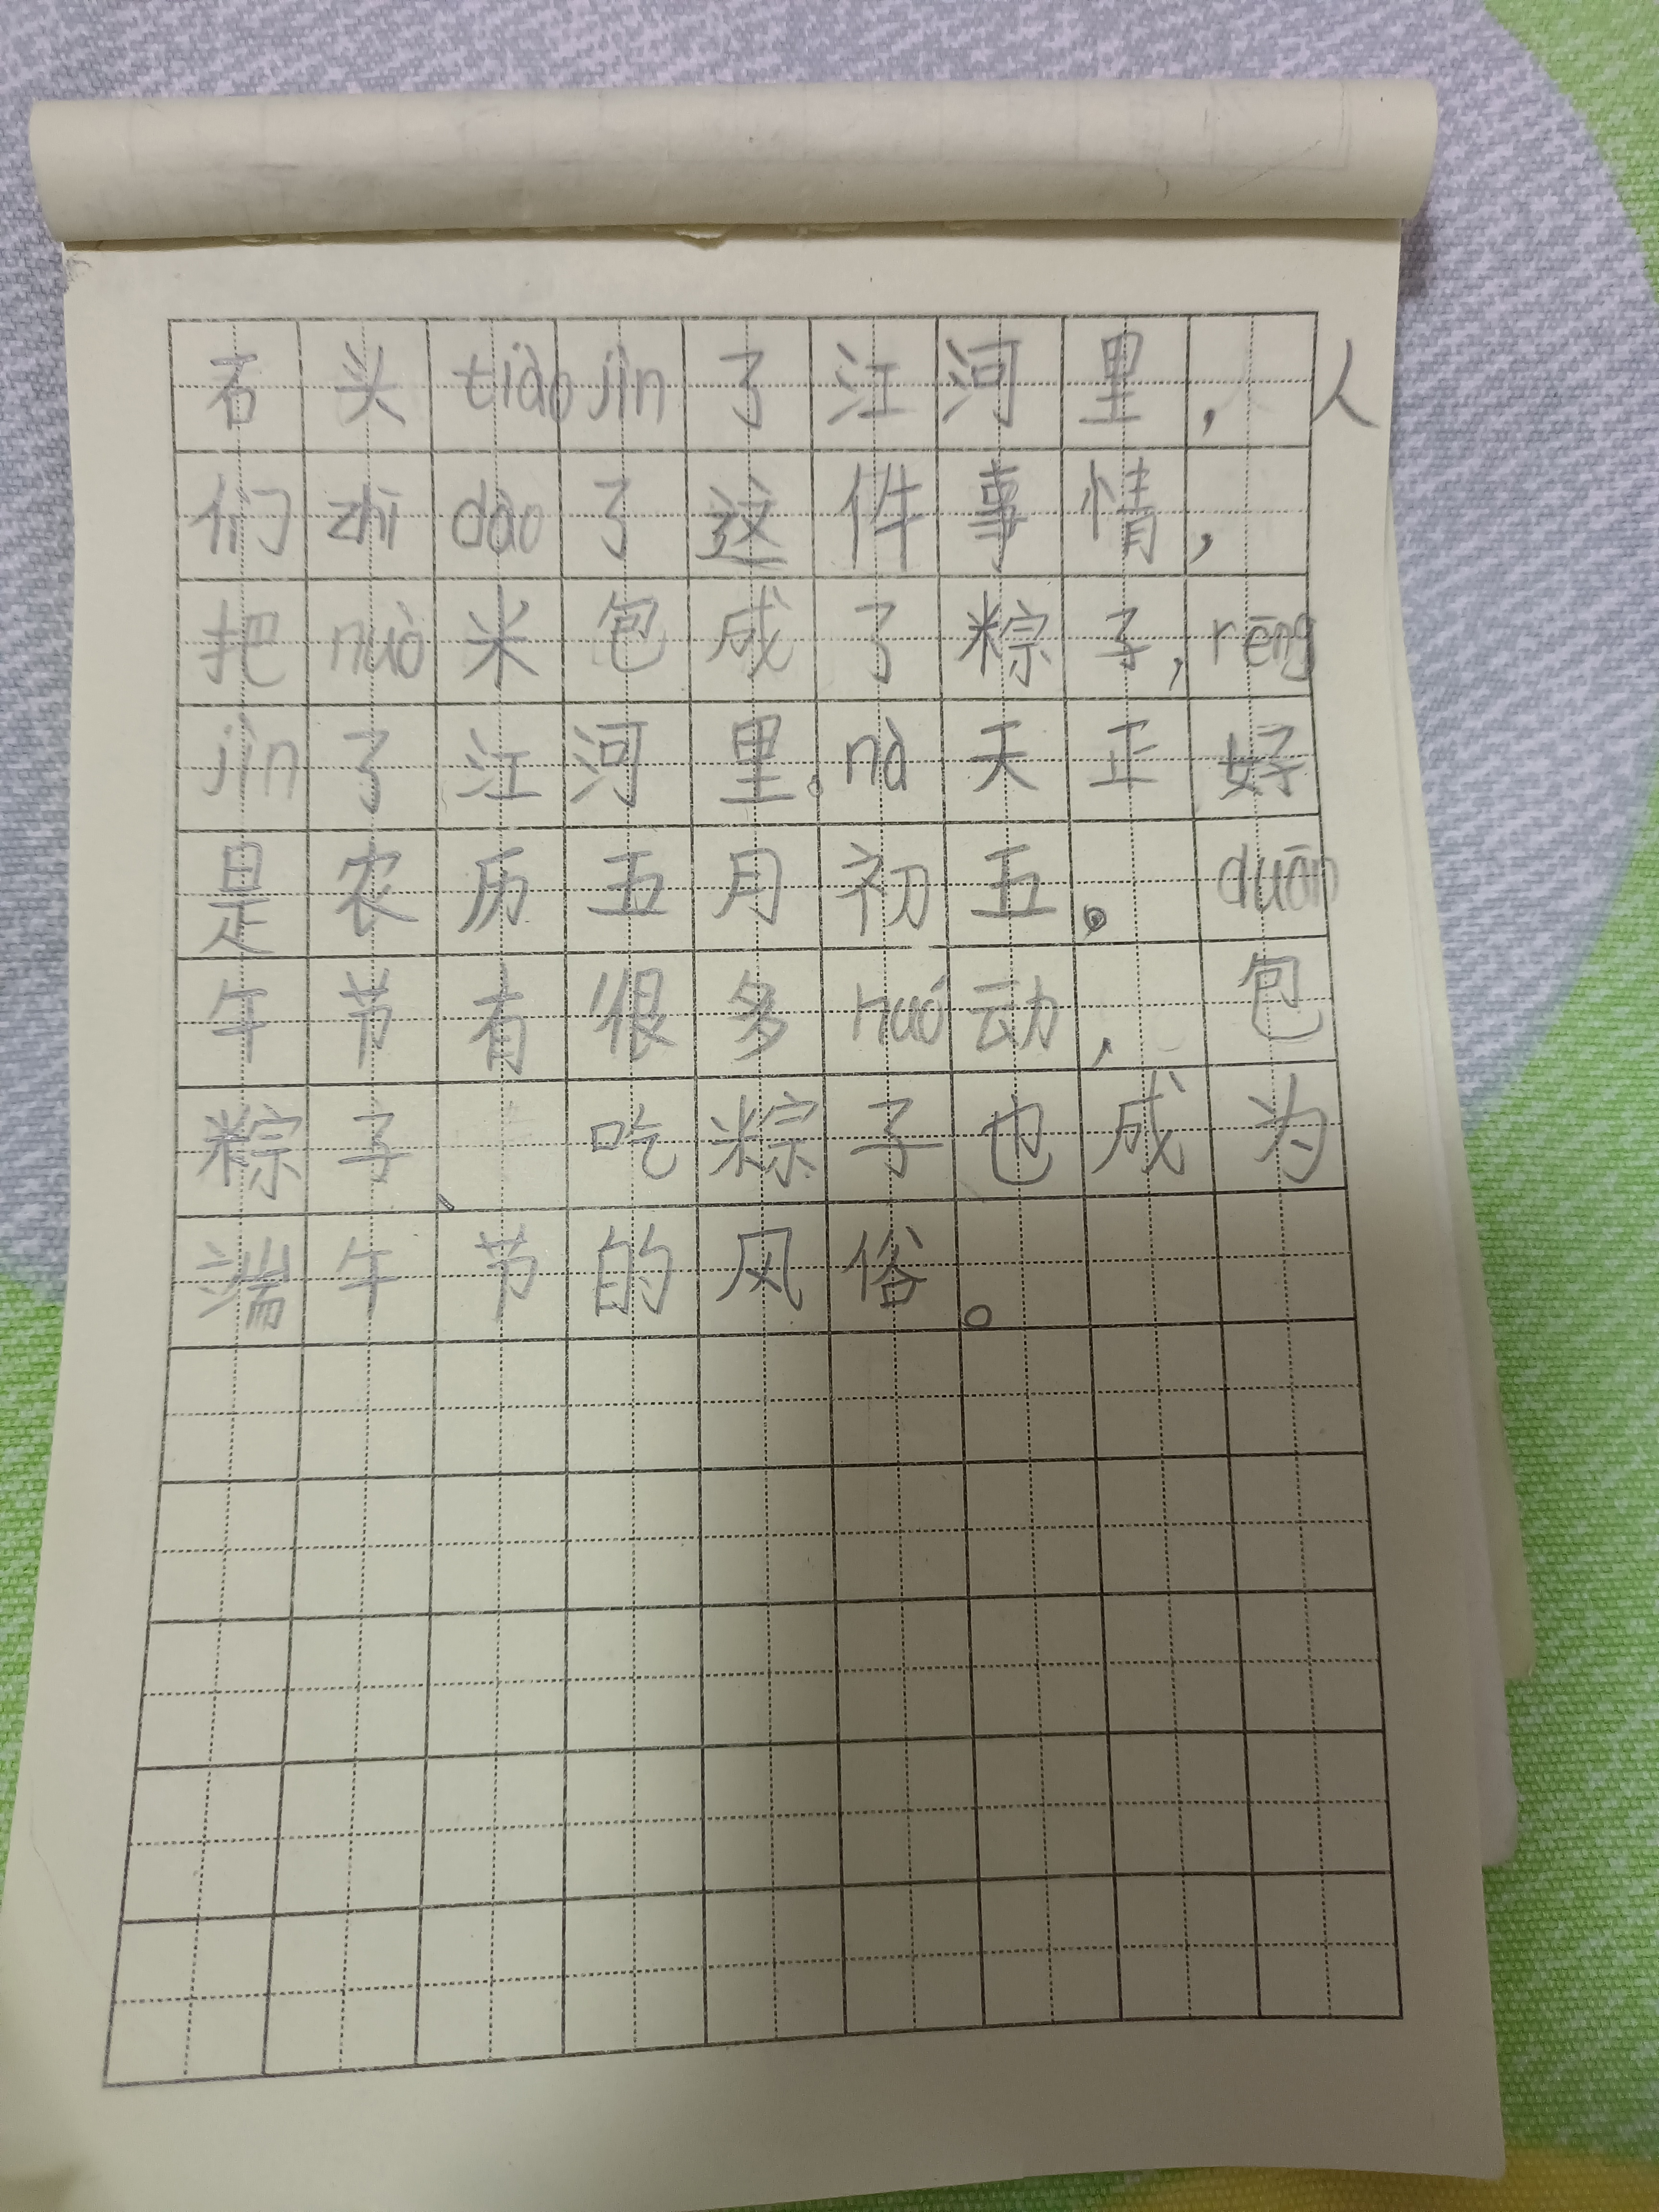 石头tiào jìn了江河里，人
们zhī dào了这件事情，
把nuò米包成了粽子，rēng
jìn了江河里。nà天正好
是农历五月初五。duān
午节有很多huó动，包
粽子、吃粽子也成为
端午节的风俗。